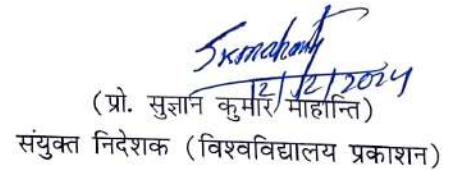 Skmahanty
12/12/2024
(प्रो. सुज्ञान कुमार माहान्ति)
संयुक्त निदेशक (विश्वविद्यालय प्रकाशन)